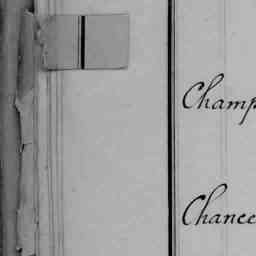 Champ
Chance